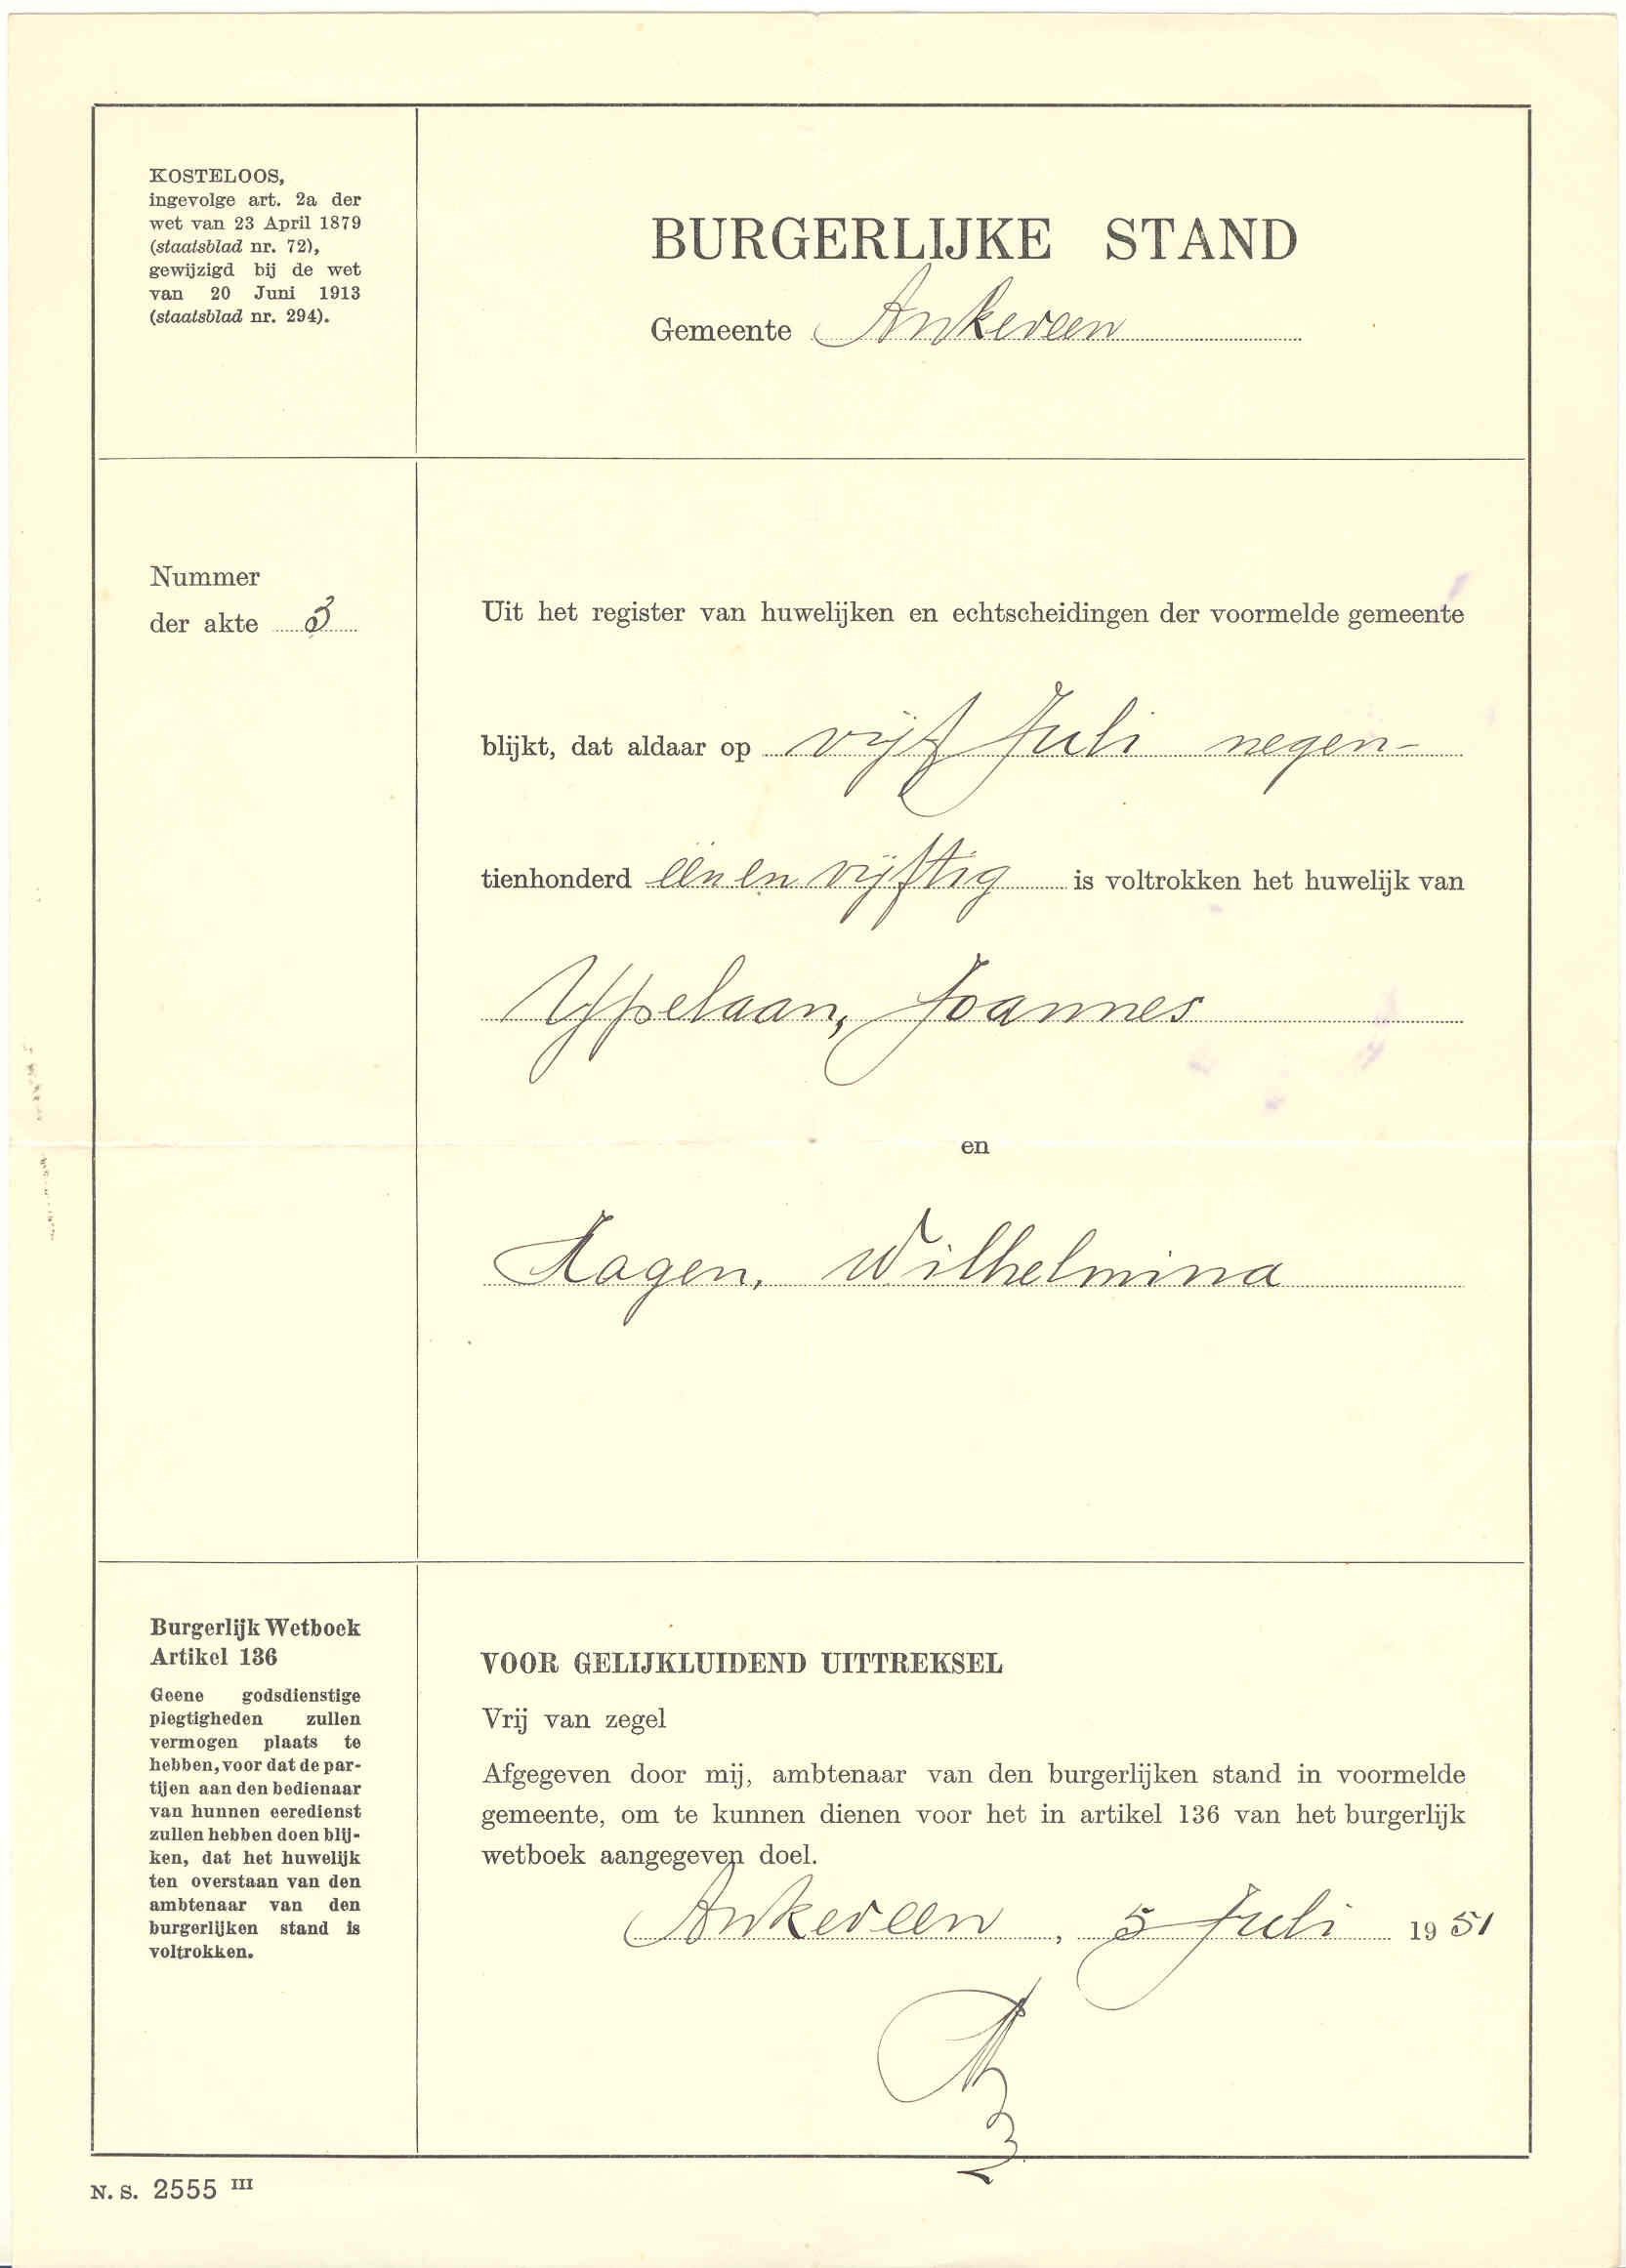 KOSTELOOS,
ingevolge art. 2a der
wet van 23 April 1879
(staatsblad nr. 72),
gewijzigd bij de wet
van 20 Juni 1913
(staatsblad nr. 294).
BURGERLIJKE STAND
Gemeente Ankeveen
Nummer
der akte 3
Uit het register van huwelijken en echtscheidingen der voormelde gemeente
blijkt, dat aldaar op vijf Juli negen-
tienhonderd één en vijftig is voltrokken het huwelijk van
Ypelaan, Joannes
en
Hagen, Wilhelmina
Burgerlijk Wetboek
Artikel 136
Geene godsdienstige
plegtigheden zullen
vermogen plaats te
hebben, voor dat de par-
tijen aan den bedienaar
van hunnen eeredienst
zullen hebben doen blij-
ken, dat het huwelijk
ten overstaan van den
ambtenaar van den
burgerlijken stand is
voltrokken.
VOOR GELIJKLUIDEND UITTREKSEL
Vrij van zegel
Afgegeven door mij, ambtenaar van den burgerlijken stand in voormelde
gemeente, om te kunnen dienen voor het in artikel 136 van het burgerlijk
wetboek aangegeven doel.
Ankeveen, 5 Juli 1951
N. S. 2555 III